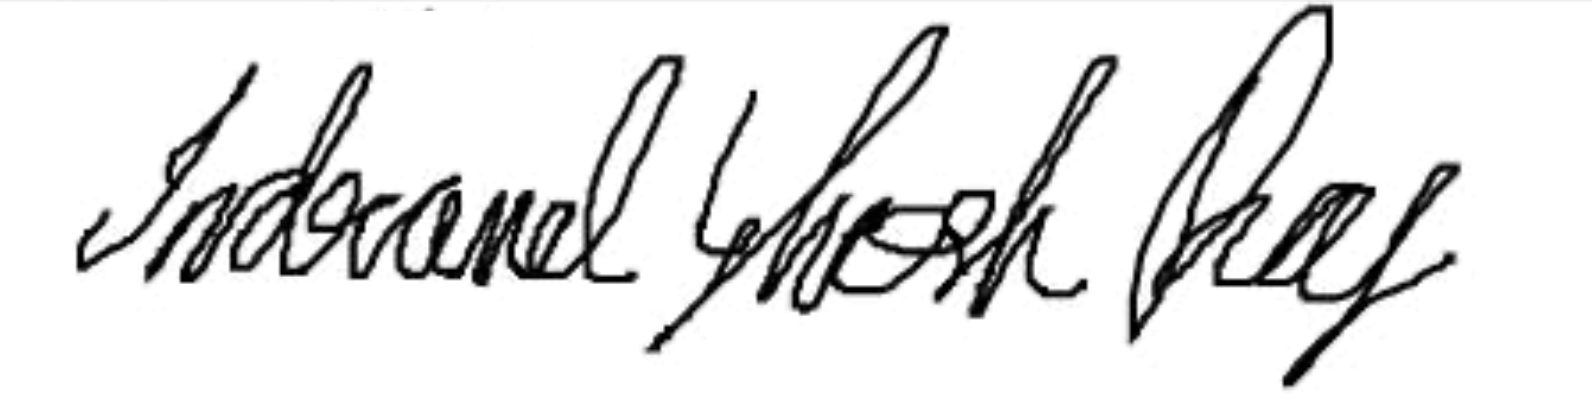 Indranel Ghosh Roy